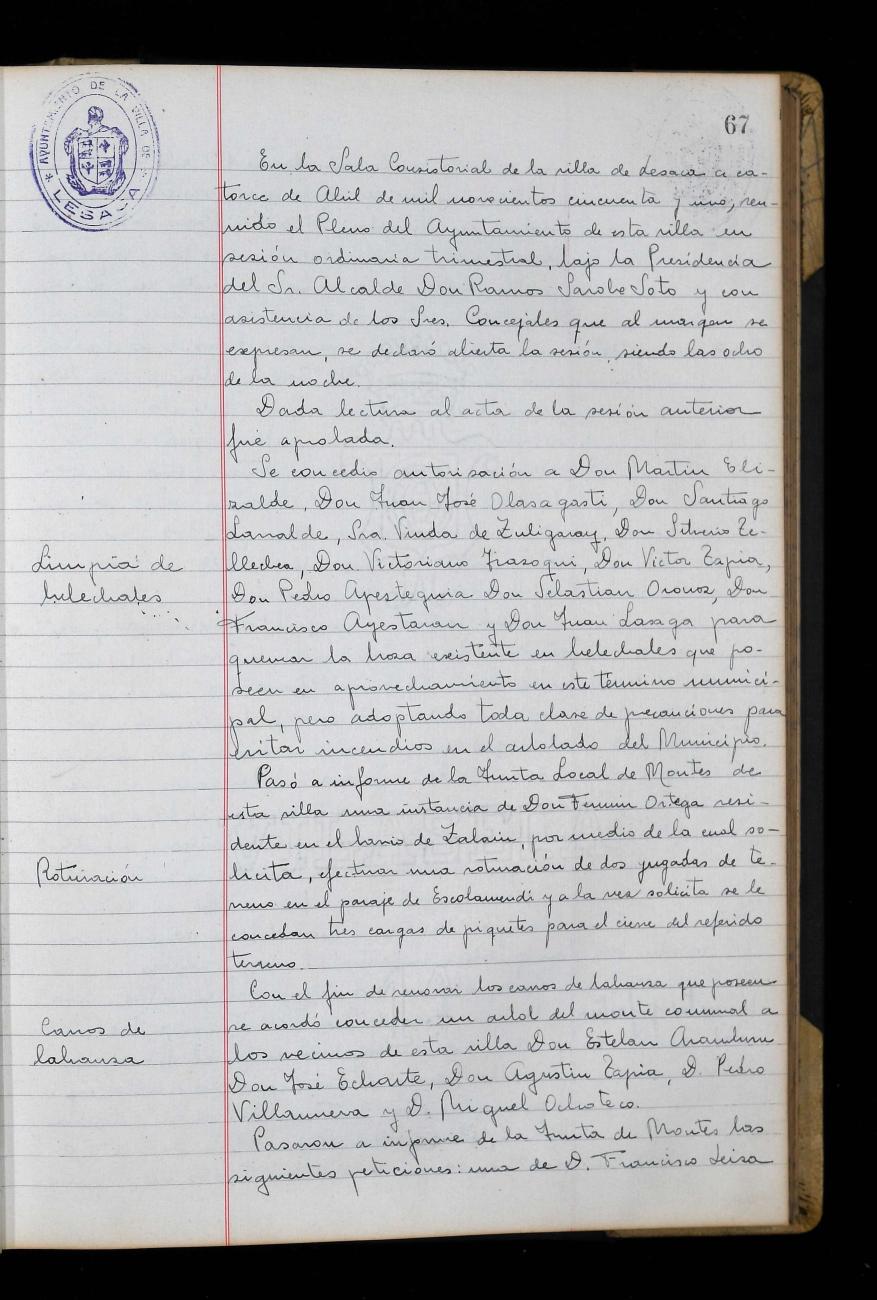 AYUNTAMIENTO DE LA VILLA DE
* LESACA *
67
En la Sala Consistorial de la villa de Lesaca a ca-
torce de Abril de mil novecientos cincuenta y uno, reu-
nido el Pleno del Ayuntamiento de esta villa en
sesión ordinaria trimestral, bajo la Presidencia
del Sr. Alcalde Don Ramos Sarobe Soto y con
asistencia de los Sres. Concejales que al margen se
expresan, se declaró abierta la sesión, siendo las ocho
de la noche.
Dada lectura al acta de la sesión anterior
fué aprobada.
Limpia de
helechales
Se concedio autorisación a Don Martin Eli-
zalde, Don Juan José Olasagasti, Don Santiago
Larralde, Sra. Viuda de Zuligaray, Don Silverio Te-
llechea, Don Victoriano Irazoqui, Don Victor Tapia,
Don Pedro Apesteguia Don Sebastian Oronoz, Don
Francisco Ayestaran y Don Juan Lasaga para
quemar la broza existente en helechales que po-
seen en aprovechamiento en este término munici-
pal, pero adoptando toda clase de precauciones para
evitar incendios en el arbolado del Municipio.
Roturación
Pasó a informe de la Junta Local de Montes de
esta villa una instancia de Don Fermin Ortega resi-
dente en el barrio de Zalain, por medio de la cual so-
licita, efectuar una roturación de dos yugadas de te-
rreno en el paraje de Escolamendi y a la vez solicita se le
concedan tres cargas de piquetes para el cierre del referido
terreno.
Carros de
labranza
Con el fin de renovar los carros de labranza que poseen
se acordó conceder un arbol del monte comunal a
los vecinos de esta villa Don Esteban Aramburu
Don José Echarte, Don Agustin Tapia, D. Pedro
Villanueva y D. Miguel Ochoteco.
Pasaron a informe de la Junta de Montes las
siguientes peticiones: una de D. Francisco Leiza